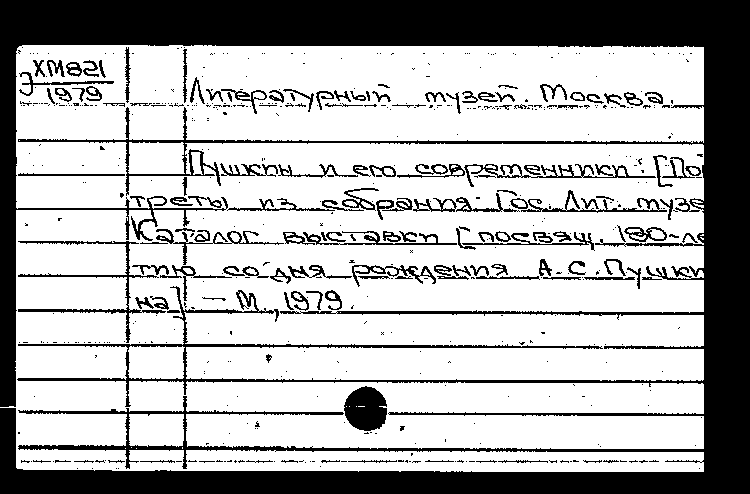 Э ХМ821
1979
Литературный музей. Москва.
Пушкин и его современники: [Пор
треты из собрания Гос. Лит. музе
Каталог выставки [посвящ. 180-ле
тию со дня рождения А.С.Пушки
на]. — М., 1979.